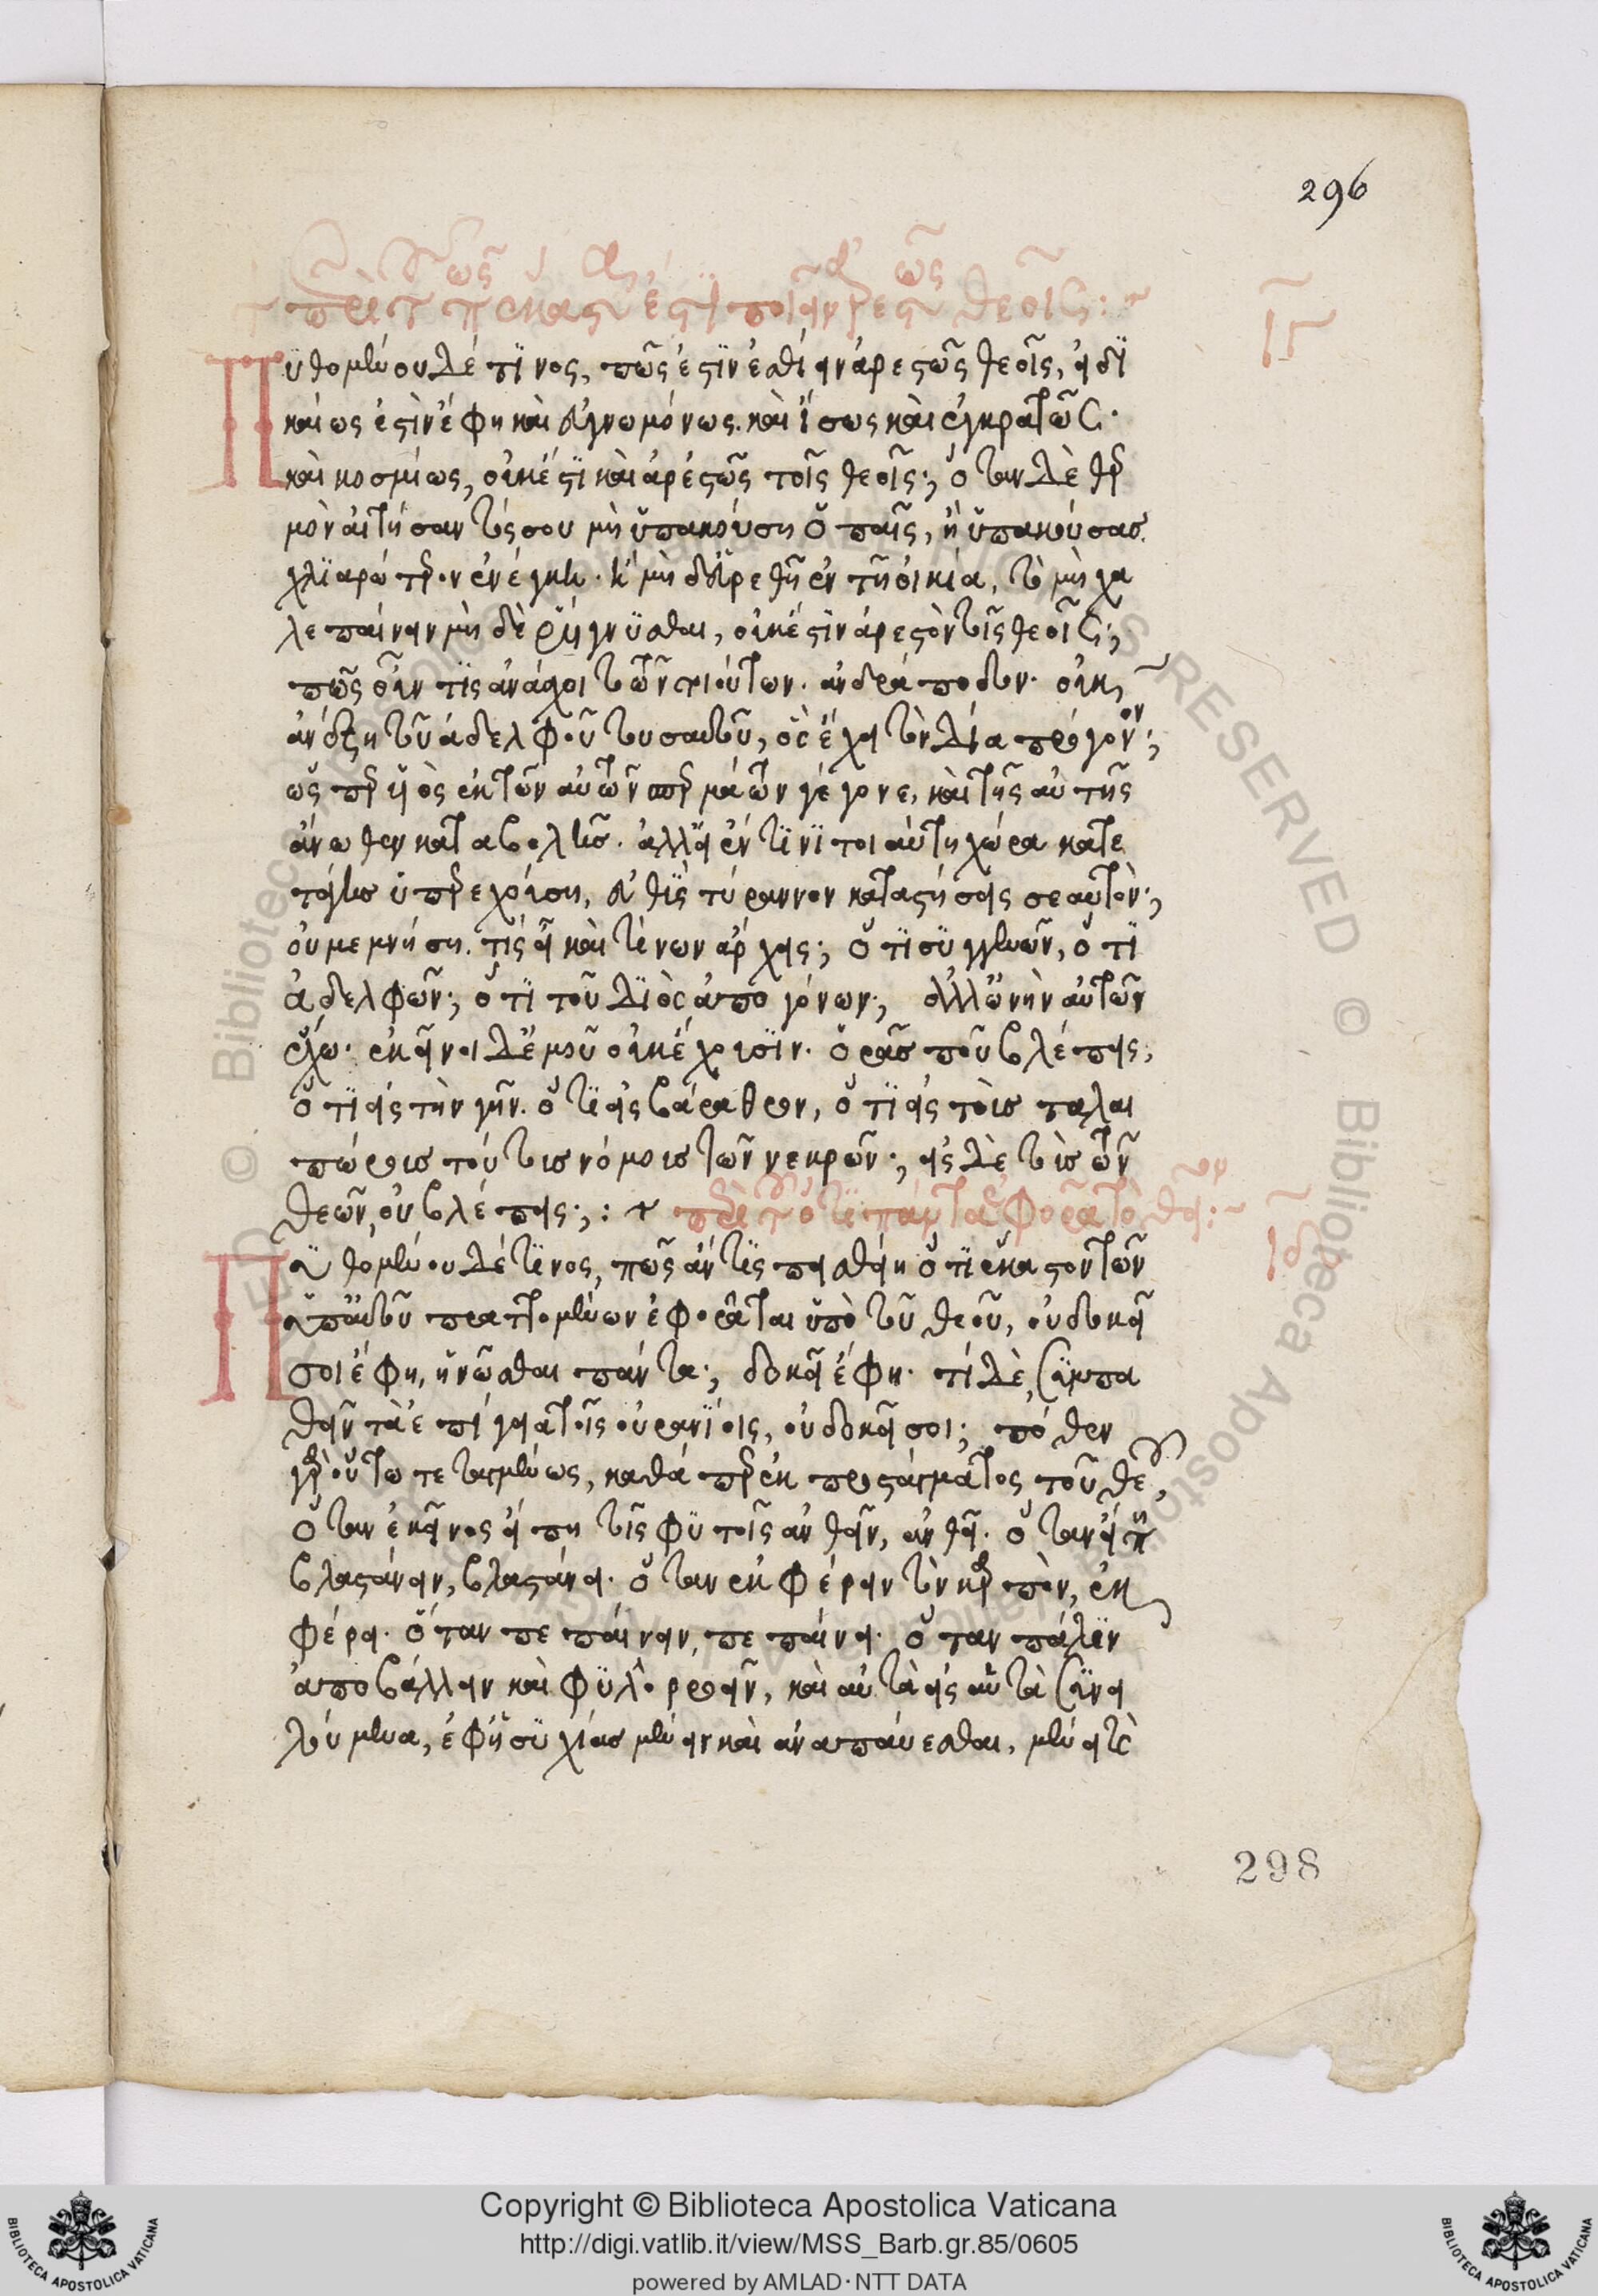 296
πῶς ἕκαστα ἔστιν ποιεῖν ἀρεστῶς θεοῖς :~
ιγ
Πυθομένου δέ τινος, πῶς ἔστιν ἐσθίειν ἀρεστῶς θεοῖς, εἰ δι
καίως ἐστὶν ἔφη καὶ εὐγνωμόνως. καὶ ἴσως καὶ ἐγκρατῶς·
καὶ κοσμίως, οὐκ ἔστι καὶ ἀρεστῶς τοῖς θεοῖς·, ὅταν δὲ θερ
μὸν αἰτήσαντός σου μὴ ὑπακούσῃ ὁ παῖς, ἢ ὑπακούσας
χλιαρώτερον ἐνέγκῃ· ἢ μὴ δ' εὑρεθῇ ἐν τῇ οἰκία, τὸ μὴ χα
λεπαίνειν μὴ δὲ ῥήγνυσθαι, οὐκ ἔστιν ἀρεστὸν τοῖς θεοῖς·,
πῶς οὖν τὶς ἀνάσχοι τῶν τοιούτων· ἀνδράποδον· οὐκ
ἀνέξῃ τοῦ ἀδελφοῦ τοῦ σαυτοῦ, ὃς ἔχει τὸν Δία πρόγονον·,
ὥσπερ υἱὸς ἐκ τῶν αὐτῶν σπερμάτων γέγονε, καὶ τῆς αὐτῆς
ἄνωθεν καταβολῆς· ἀλλ' εἰ ἔν τινι τοιαύτη χώρα κατε
τάγης ὑπερεχούσῃ, εὐθὺς τύραννον καταστήσεις σεαυτὸν·,
οὐ μεμνήσῃ. τίς εἶ καὶ τίνων ἄρχεις; ὅτι συγγενῶν, ὅτι
ἀδελφῶν·, ὅτι τοῦ Διὸς ἀπογόνων·, ἀλλ' ὠνὴν αὐτῶν
ἔχω· ἐκεῖνοι δ' ἐμοῦ οὐκ ἔχουσιν· ὁρᾷς ποῦ βλέπεις,
ὅτι εἰς τὴν γῆν. ὅτι εἰς βάραθρον, ὅτι εἰς τοὺς ταλαι
πώρους τούτους νόμους τῶν νεκρῶν·, εἰς δὲ τοὺς τῶν
θεῶν, οὐ βλέπεις·, :~ ὅτι πάντα ἐφορᾷ τὸ θεῖον :~
ιδ
Πυθομένου δέ τινος, πῶς ἄν τις πεισθείη ὅτι ἕκαστον τῶν
ὑπ' αὐτοῦ πραττομένων ἐφορᾶται ὑπὸ τοῦ θεοῦ, οὐ δοκεῖ
σοι ἔφη, ἡνῶσθαι πάντα·, δοκεῖ ἔφη· τί δὲ, συμπα
θεῖν τὰ ἐπίγεια τοῖς οὐρανίοις, οὐ δοκεῖ σοι; πόθεν
γὰρ οὕτω τεταγμένως, καθάπερ ἐκ προστάγματος τοῦ θεοῦ,
ὅταν ἐκεῖνος εἴπῃ τοῖς φυτοῖς ἀνθεῖν, ἀνθεῖ· ὅταν εἴπῃ
βλαστάνειν, βλαστάνει· ὅταν ἐκφέρειν τὸν καρπὸν, ἐκ
φέρει· ὅταν πεπαίνειν, πεπαίνει· ὅταν πάλιν
ἀποβάλλειν καὶ φυλλορροεῖν, καὶ αὐτὰ εἰς αὑτὰ συνει
λούμενα, ἐφ' ἡσυχίας μένειν καὶ ἀναπαύεσθαι, μένει τὲ
298
Copyright © Biblioteca Apostolica Vaticana
http://digi.vatlib.it/view/MSS_Barb.gr.85/0605
powered by AMLAD·NTT DATA